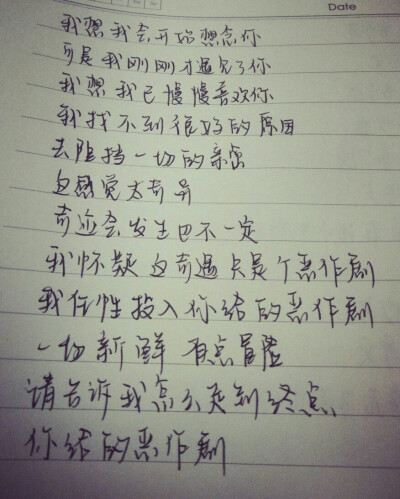 Date
我想我会开始想念你
可是我刚刚才遇见了你
我想我已慢慢喜欢你
我找不到很好的原因
去阻挡一切的亲密
这感觉太奇异
奇迹会发生也不一定
我怀疑这奇遇只是个恶作剧
我任性投入你给的恶作剧
一切新鲜 有点冒险
请告诉我怎么走到终点
你给的恶作剧